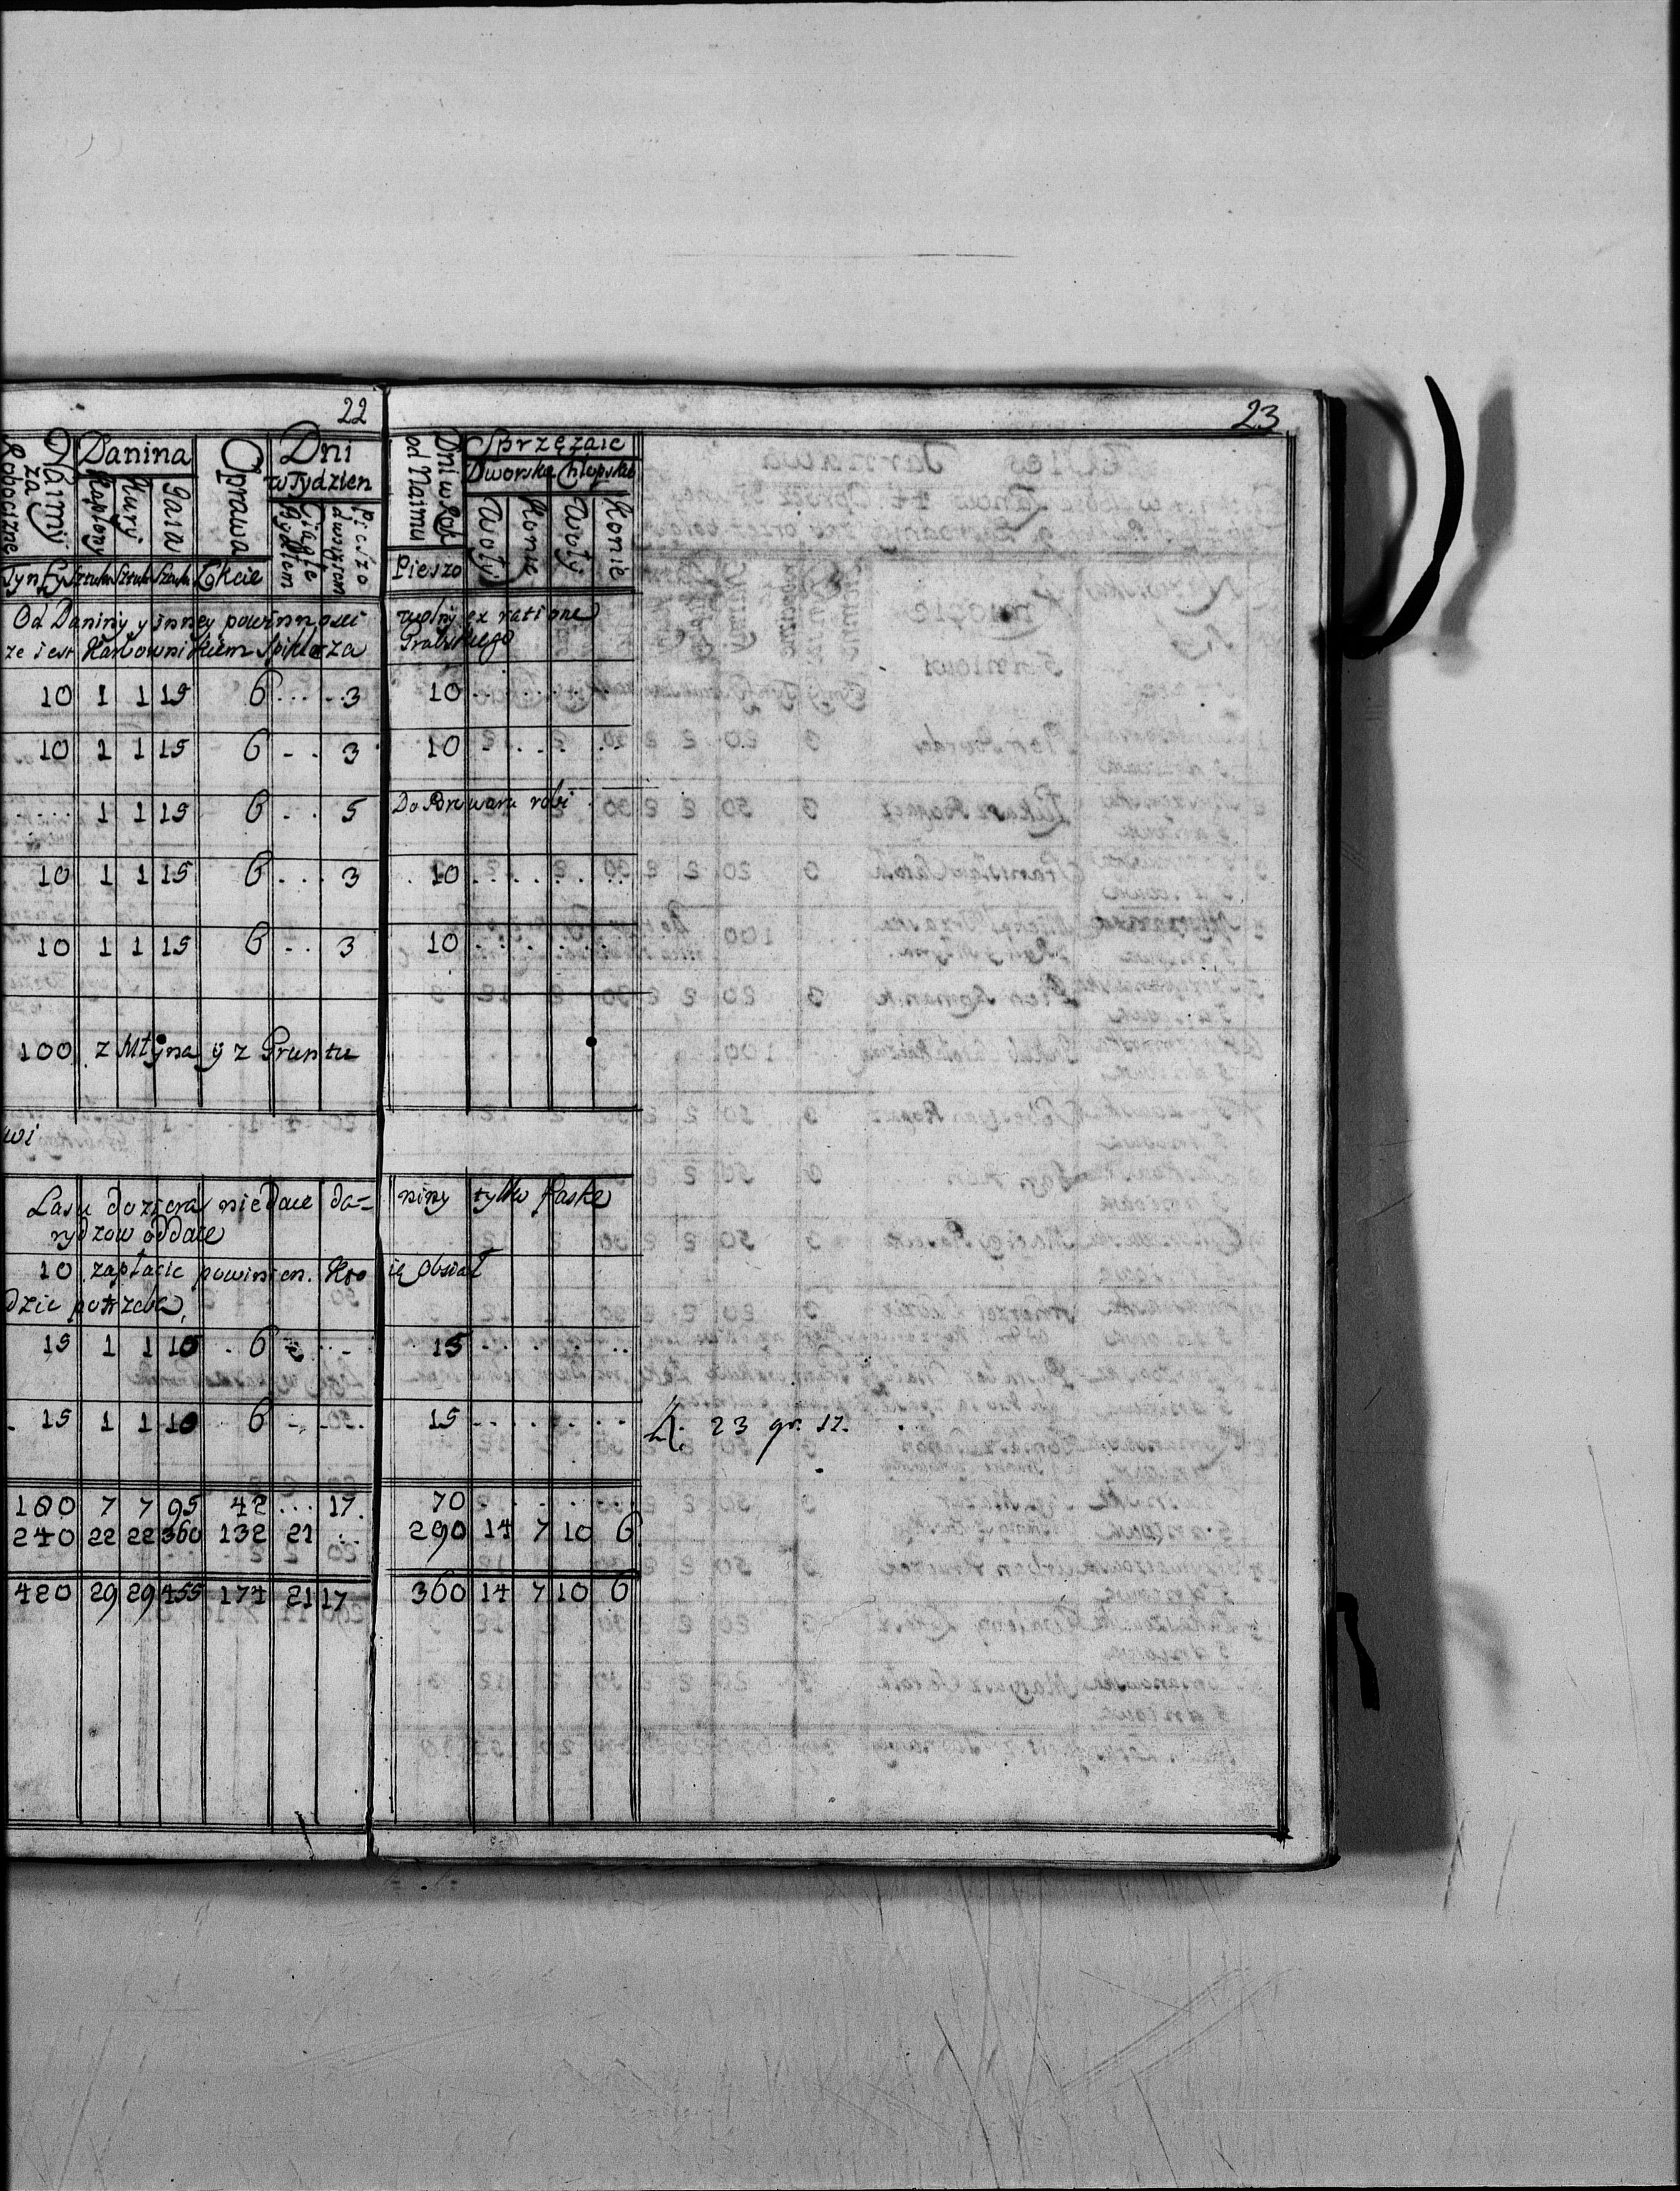 22
23
za Robociznę
Danina
Oprawa
Dni w Tydzien
Dni w Rok od Naimu
Sprzężaie
Dworskie Chłopskie
Kapłony Kury Jaia
Ciągłe Bydłem
Pieszo
Woły Konie Woły Konie
Tynfy Sztuka Sztuka Sztuka Łokcie
Pieszo
Od Daniny y inney powinnosci wolny ex ratione
ze iest Karbownikiem Spiklerza
10 1 1 15 6 . . . . . 3 10 . . . . .
10 1 1 15 6 - . . 3 10 - . . - .
. . . . 1 1 15 6 . . . 5 Do Browaru robi
10 1 1 15 6 . . . . 3 10 . . . . .
10 1 1 15 6 - . . 3 10 . . . . .
100 z Młyna y z Gruntu
wi
Lasu doziera niedaie da= niny tylko faskę
rydzow oddaie
10 zapłacic powinien.
dzie potrzeba
15 1 1 10 . 6 - . . - 15 - . . . . .
- 15 1 1 10 6 - . - . 15 - . . . . .
23 gr. 12.
180 7 7 95 42 . . . 17. 70
240 22 22 360 132 21 . . 290 14 7 10 6
420 29 29 455 174 21 17 360 14 7 10 6